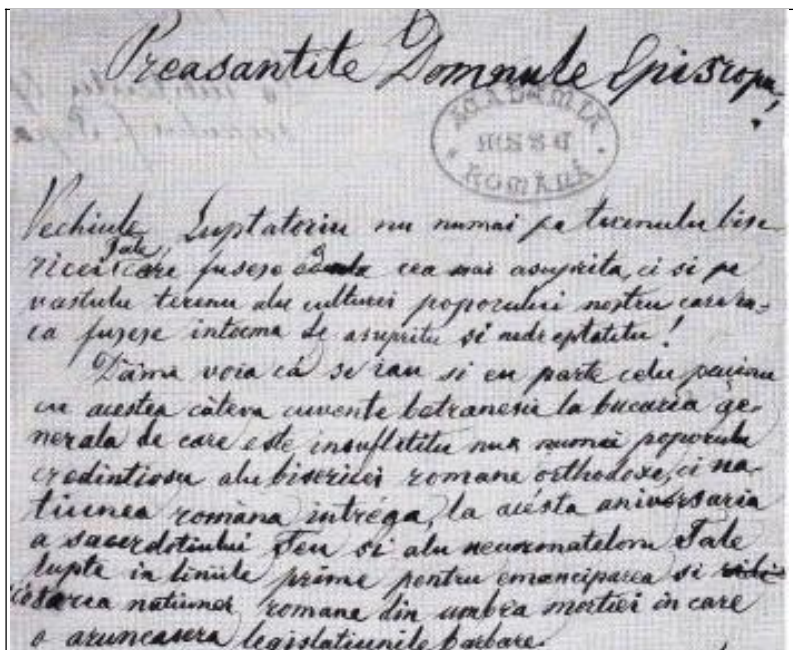 Preasantite Domnule Episcopu!
ACADEMIA
ROMÂNĂ
Vechiule Luptatoriu nu numai pe terenulu bise
ricei Tale, care fusese cea mai asuprita, ci si pe
vastulu terenu alu culturei poporului nostru care
ca fusese intocma de asupritu si nedreptatitu!
Dàmi voia cà se iau si eu parte celu pucinu
cu acestea càteva cuvente betranesci la bucuria ge-
nerala de care este insufletitu nu numai poporulu
credintiosu alu bisericei romane orthodoxe, ci na
tiunea romàna intréga, la acésta aniversaria
a sacerdotiului Teu si alu necurmatelor Tale
lupte in liniile prime pentru emanciparea si
carea natiunei romane din umbra mortiei in care
o aruncasera legislatiunile barbare.